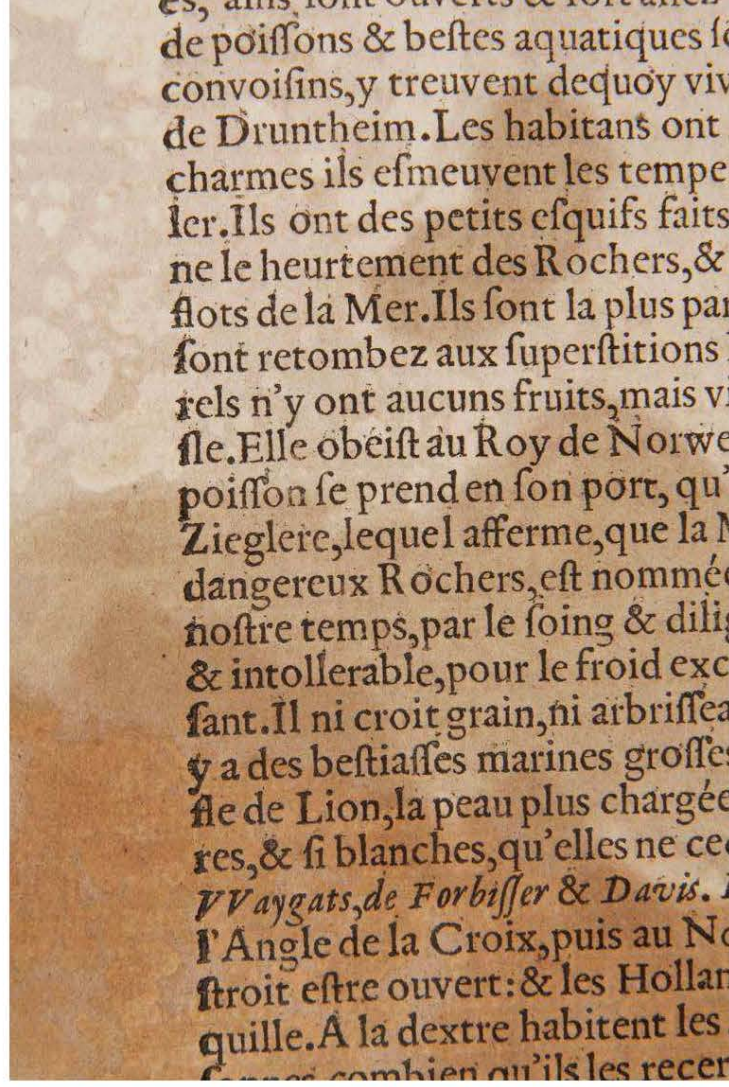 es, ains ſont ouverts & fort
de poiſſons & beſtes aquatiques ſe
convoiſins,y treuvent dequoy viv
de Druntheim.Les habitans ont
charmes ils eſmeuvent les tempe
ler.Ils ont des petits eſquifs faits
ne le heurtement des Rochers,&
flots de la Mer.Ils ſont la plus par
ſont retombez aux ſuperſtitions
rels n'y ont aucuns fruits,mais vi
ſle.Elle obeiſt au Roy de Norwe
poiſſon ſe prend en ſon port, qu'
Zieglere,lequel afferme,que la M
dangereux Rochers,eſt nommée
noſtre temps,par le ſoing & dilig
& intollerable,pour le froid exc
ſant.Il ni croit grain,ni arbriſſea
y a des beſtiaſſes marines groſſes
fle de Lion,la peau plus chargée
res,& ſi blanches,qu'elles ne ce
VVaygats,de Forbiſſer & Davis.
l'Angle de la Croix,puis au No
ſtroit eſtre ouvert:& les Hollan
quille.A la dextre habitent les
combien qu'ils les recer